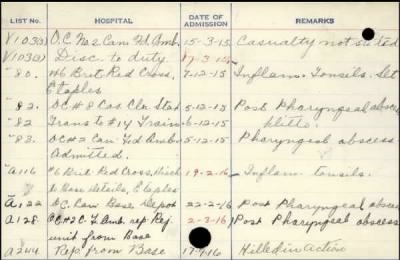 LIST NO. HOSPITAL DATE OF ADMISSION REMARKS
V103(3) O.C. No 2 Can Fd Amb. 15-3-15 Casualty not stated
V103(3) Disc. to duty. 17-3-15
"80. #6 Brit Red Cross, 7-12-15 Inflam. Tonsils. Slt
Etaples
"82. OC #8 Cas Clg Stat 5-12-15 Post Pharyngeal abscess
"82 Trans to #14 Train 6-12-15 ditto.
"83. OC #2 Can Fd Amb 5-12-15 Pharyngeal abscess
Admitted.
A116 #6 Brit Red Cross, Disch 19-2-16 Inflam tonsils.
to Base details, Etaples
A122 OC. Can Base Depot 22-2-16 Post Pharyngeal abscess
A128. OC #2 C. F. Amb. rep. Rej. 2-3-16 Post Pharyngeal abscess
unit from Base
A244 Rep. from Base Killed in Action